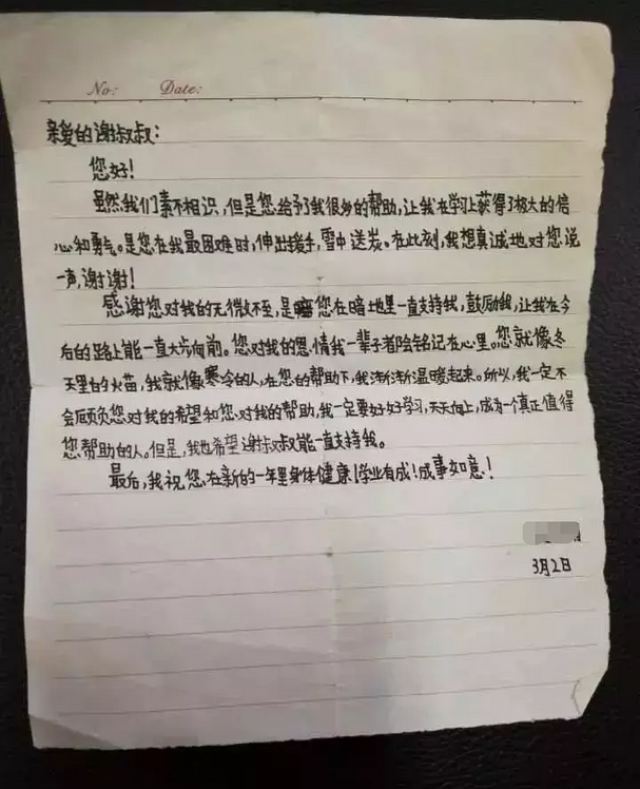 No:          Date:
亲爱的谢叔叔：
您好！
虽然我们素不相识，但是您给予了我很多的帮助，让我在学习上获得了极大的信
心和勇气。是您在我最困难时，伸出援手，雪中送炭。在此刻，我想真诚地对您说
一声，谢谢！
感谢您对我的无微不至，是您在暗地里一直支持我，鼓励我，让我在今
后的路上能一直大步向前。您对我的恩情我一辈子都会铭记在心里。您就像冬
天里的火苗，我就像寒冷的人，在您的帮助下，我渐渐温暖起来。所以，我一定不
会辜负您对我的希望和您对我的帮助，我一定要好好学习，天天向上，成为一个真正值得
您帮助的人。但是，我也希望谢叔叔能一直支持我。
最后，我祝您在新的一年里身体健康！学业有成！成事如意！
3月2日